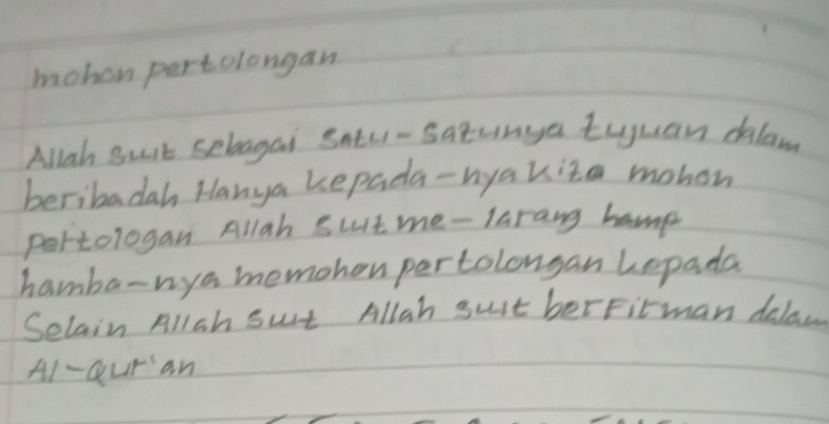 mohon pertolongan
Allah swt sebagai satu-satunya tujuan dalam
beribadah Hanya kepada-nya kita mohon
pertologan Allah swt me-larang hamp
hamba-nya memohon pertolongan kepada
Selain Allah swt Allah swt berFirman dalam
Al-Qur'an